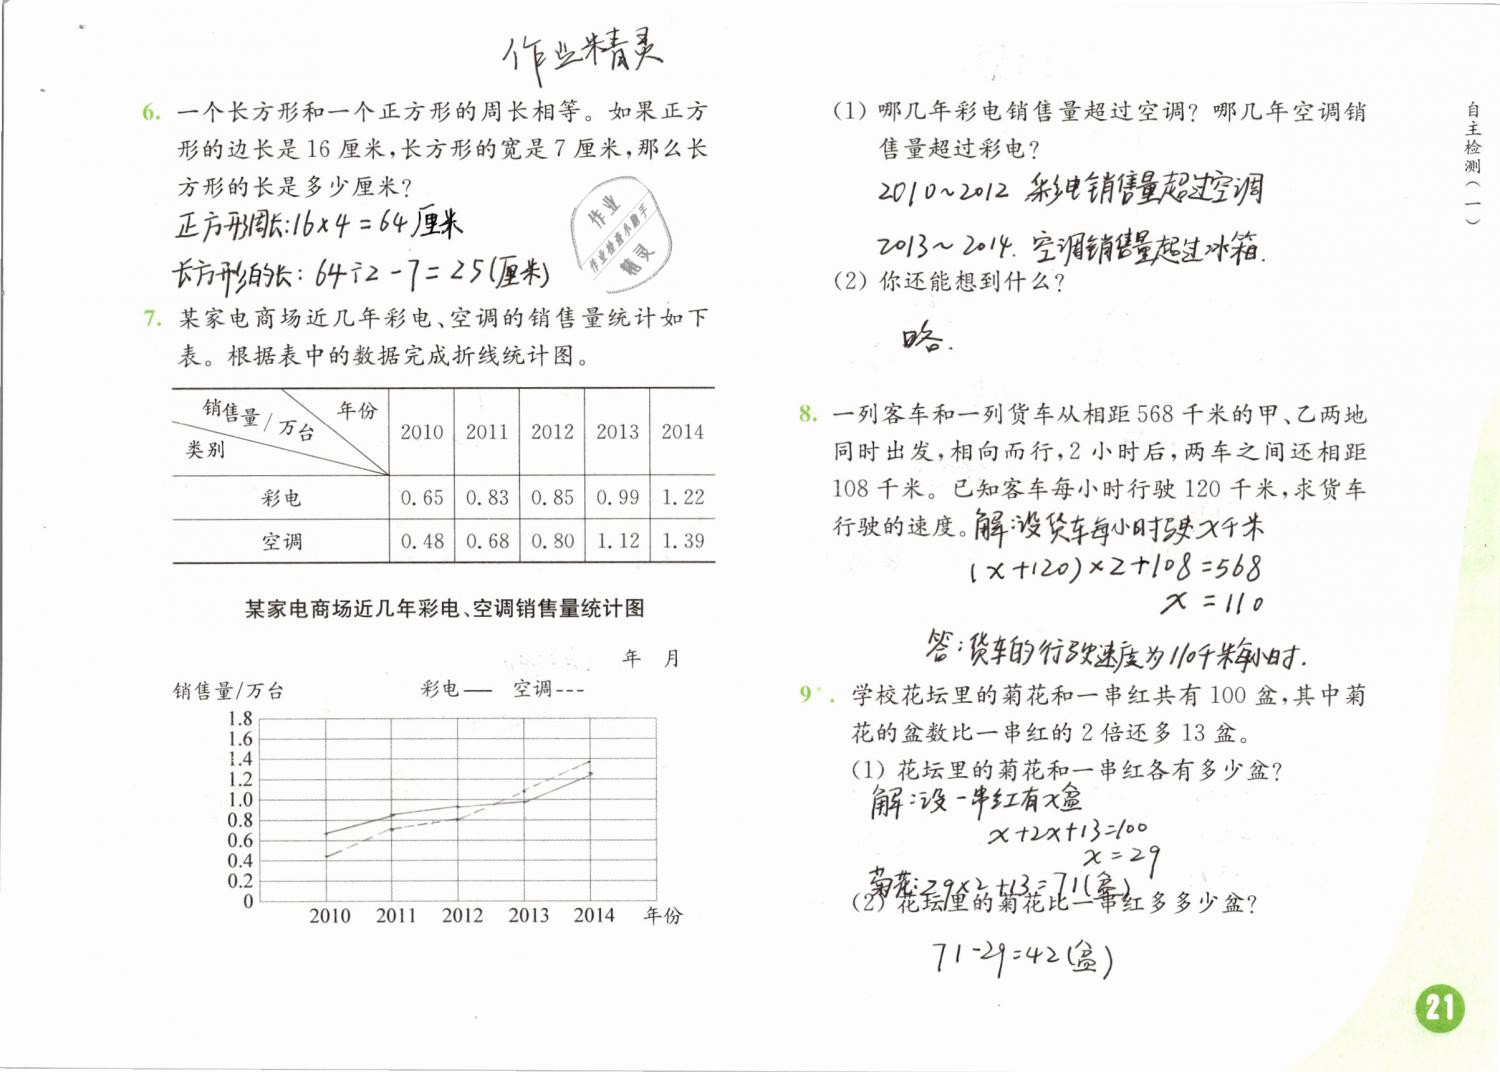 作业精灵
6. 一个长方形和一个正方形的周长相等。如果正方
形的边长是16厘米,长方形的宽是7厘米,那么长
方形的长是多少厘米?
正方形周长:16×4=64厘米
长方形的长:64÷2-7=25(厘米)
作业
作业检查小助手
精灵
7. 某家电商场近几年彩电、空调的销售量统计如下
表。根据表中的数据完成折线统计图。
销售量/万台 年份 类别 2010 2011 2012 2013 2014
彩电 0.65 0.83 0.85 0.99 1.22
空调 0.48 0.68 0.80 1.12 1.39
某家电商场近几年彩电、空调销售量统计图
年 月
销售量/万台 彩电—— 空调---
1.8
1.6
1.4
1.2
1.0
0.8
0.6
0.4
0.2
0
2010 2011 2012 2013 2014 年份
(1) 哪几年彩电销售量超过空调?哪几年空调销
售量超过彩电?
2010~2012 彩电销售量超过空调
2013~2014. 空调销售量超过冰箱.
(2) 你还能想到什么?
略.
8. 一列客车和一列货车从相距568千米的甲、乙两地
同时出发,相向而行,2小时后,两车之间还相距
108千米。已知客车每小时行驶120千米,求货车
行驶的速度。解:设货车每小时行驶x千米
(x+120)×2+108=568
x=110
答:货车的行驶速度为110千米每小时.
9*. 学校花坛里的菊花和一串红共有100盆,其中菊
花的盆数比一串红的2倍还多13盆。
(1) 花坛里的菊花和一串红各有多少盆?
解:设一串红有x盆
x+2x+13=100
x=29
菊花:29×2+13=71(盆)
(2) 花坛里的菊花比一串红多多少盆?
71-29=42(盆)
自主检测(一)
21